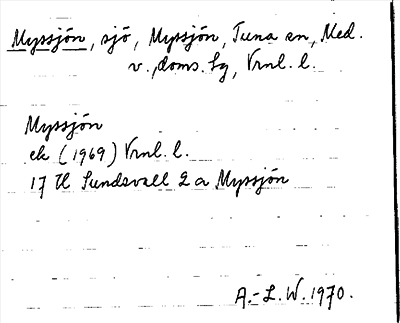 Myssjön, sjö, Myssjön, Tuna sn, Med.
v., doms. Sg, Vrnl. l.
Myssjön
ek (1969) Vrnl. l.
17 H Sundsvall 2 a Myssjön
A.-L. W. 1970.